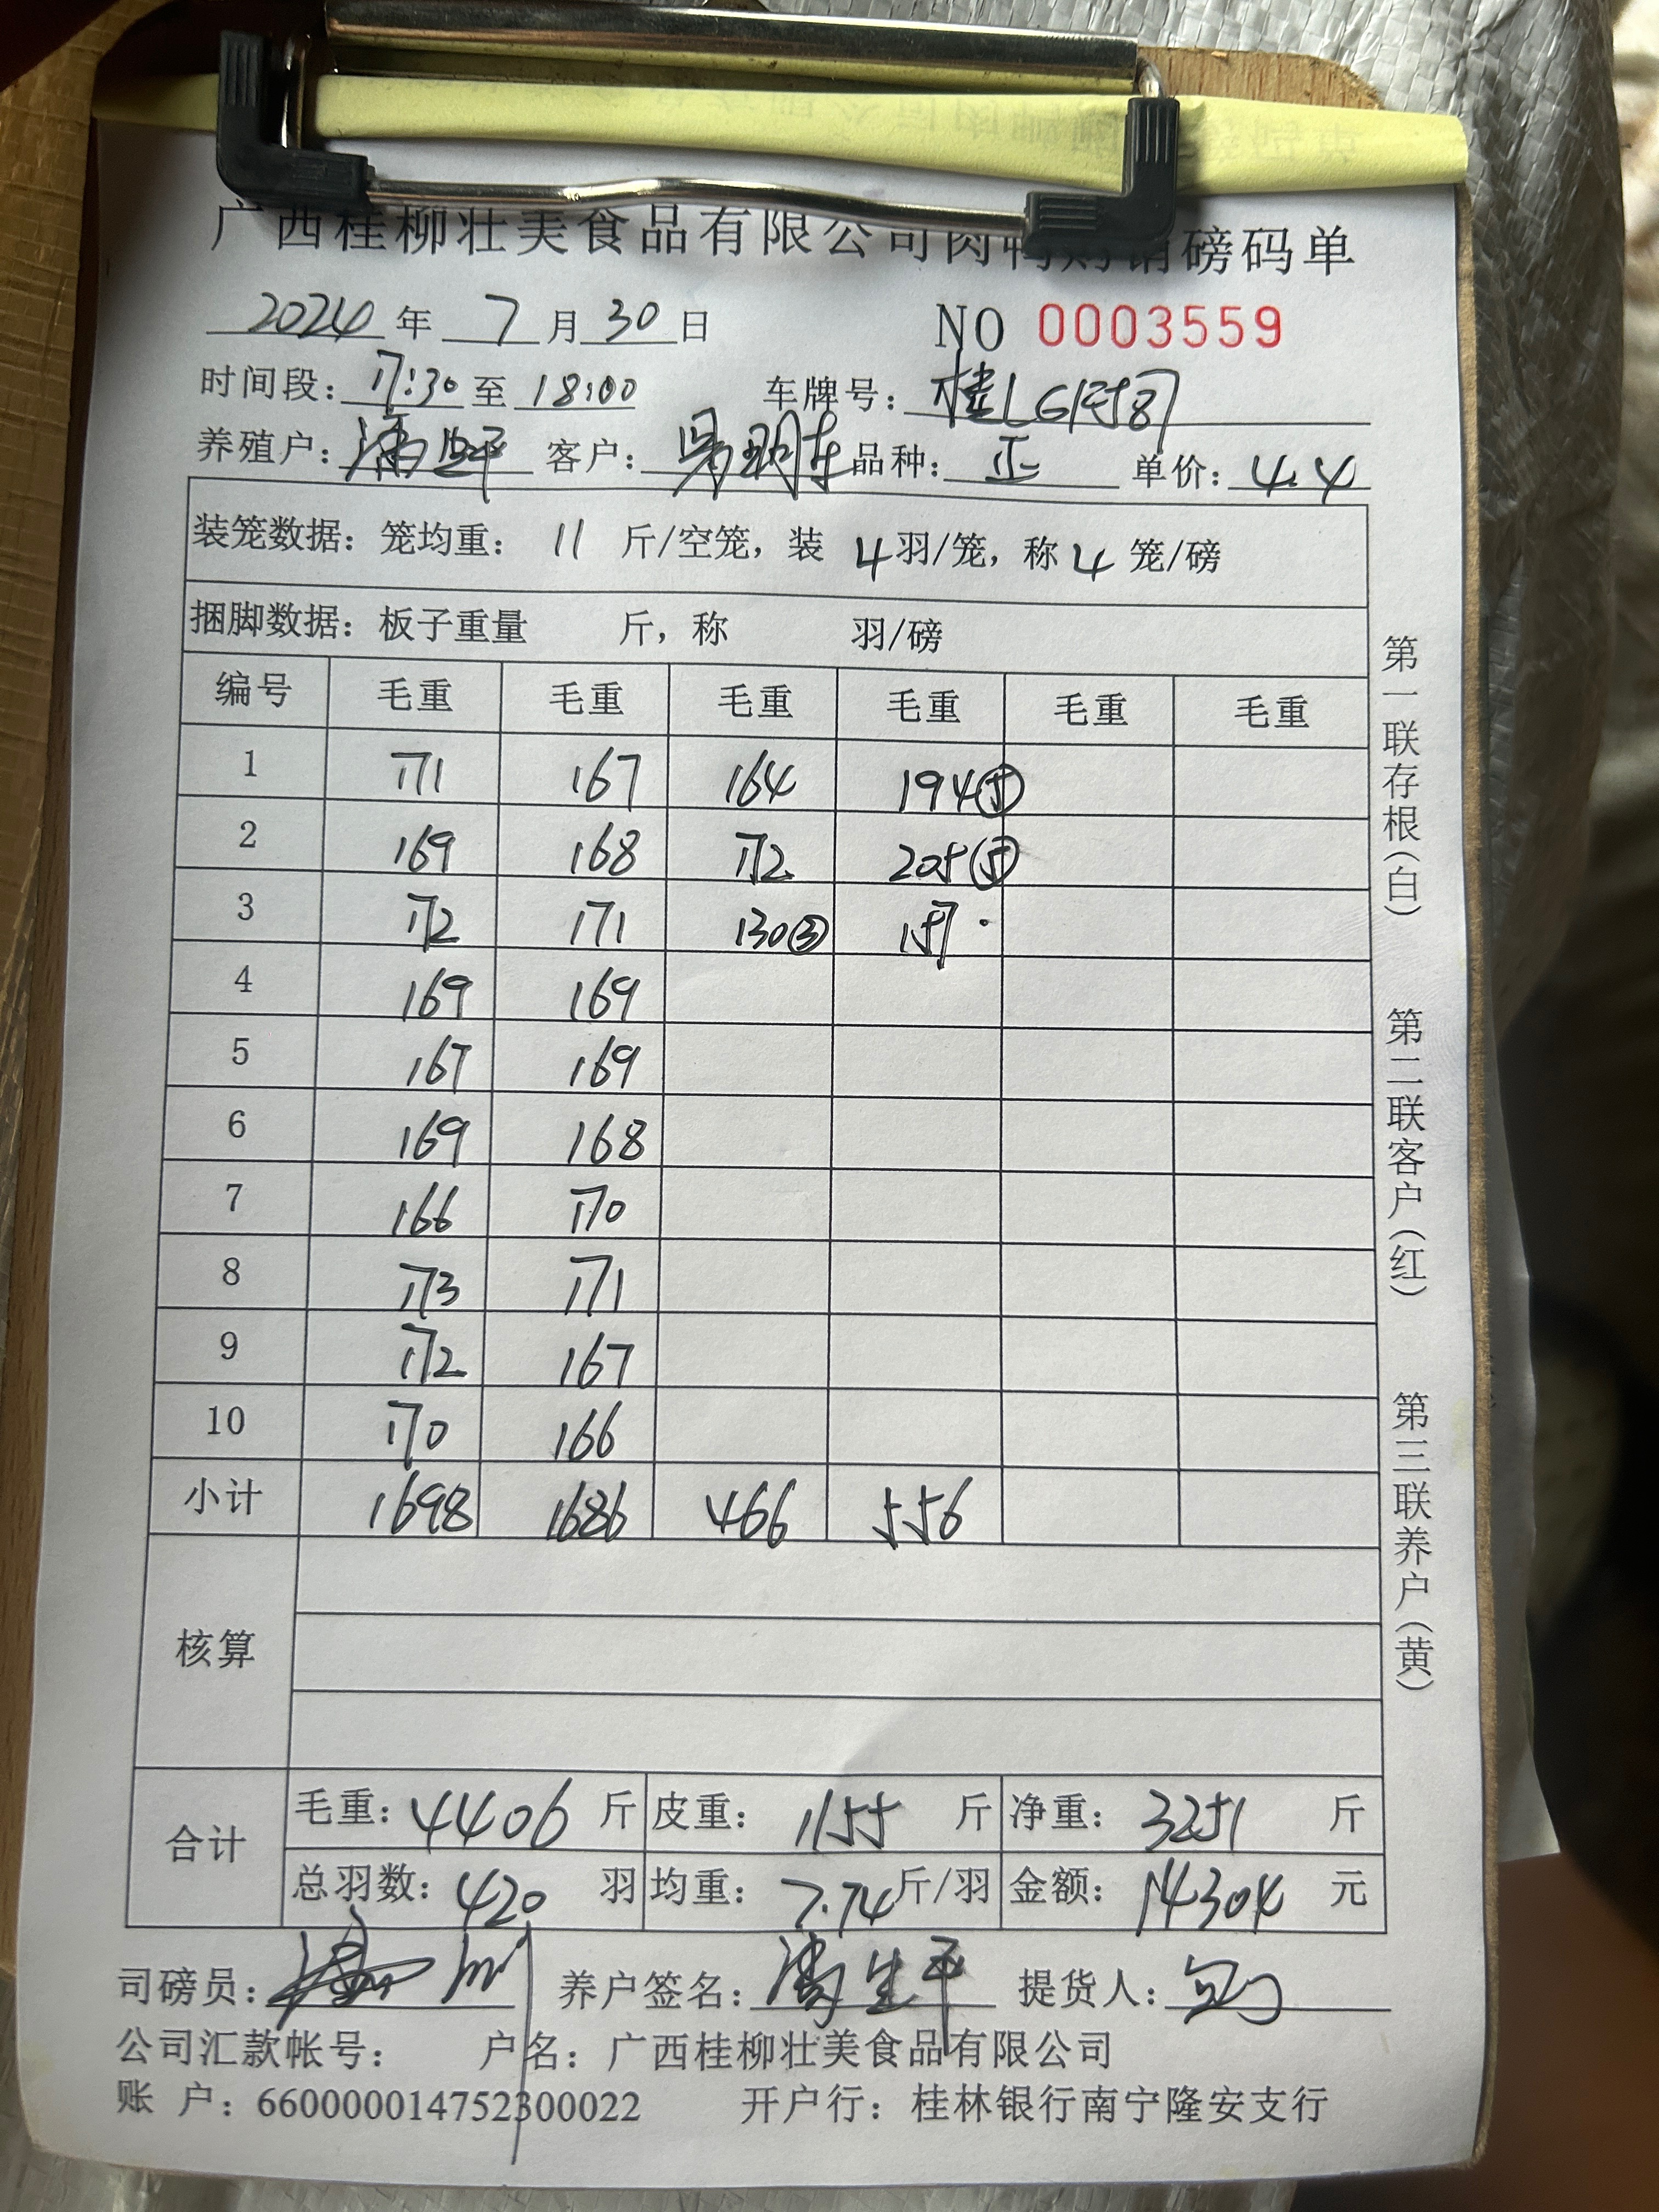 广西桂柳壮美食品有限公司肉鸭购销磅码单
2024年 7月30日 NO 0003559
时间段：17:30至18:00 车牌号：桂L
养殖户： 客户：吴明东 品种：正 单价：4.4
装笼数据：笼均重：11斤/空笼，装4羽/笼，称4笼/磅
捆脚数据：板子重量 斤，称 羽/磅
编号 毛重 毛重 毛重 毛重 毛重 毛重
1 171 167 164 194⑤
2 169 168 172 205⑤
3 172 171 130③ 157
4 169 169
5 167 169
6 169 168
7 166 170
8 173 171
9 172 167
10 170 166
小计 1698 1686 466 556
核算
合计 毛重：4406斤 皮重：1155斤 净重：3251斤
总羽数：420羽 均重：7.74斤/羽 金额：14304元
司磅员： 养户签名： 提货人：
公司汇款帐号： 户名：广西桂柳壮美食品有限公司
账 户：660000014752300022 开户行：桂林银行南宁隆安支行
第一联存根（白） 第二联客户（红） 第三联养户（黄）